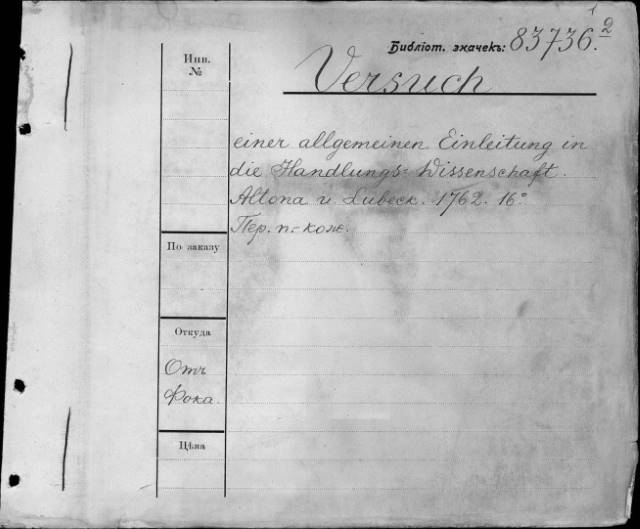 1
Библіот. значекъ: 83736.2
Инв.
№
Versuch
einer allgemeinen Einleitung in
die Handlungs-Wissenschaft.
Altona u. Lubeck. 1762. 16°
Пер. п.-кож.
По заказу
Откуда
Отъ
Фока.
Цѣна